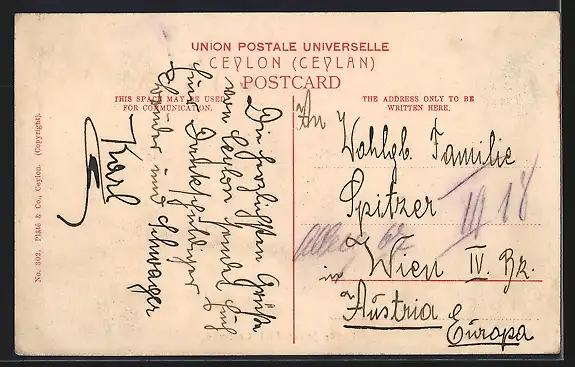 UNION POSTALE UNIVERSELLE
CEYLON (CEYLAN)
POSTCARD
THIS SPACE MAY BE USED
FOR COMMUNICATION.
THE ADDRESS ONLY TO BE
WRITTEN HERE.
No. 302. Plâté & Co., Ceylon. (Copyright).
Die herzlichsten Grüße
von Ceylon sendet Euch
Euer Dankschuldiger
Bruder und Schwager
Karl
An
Wohlgb. Familie
Spitzer
in Wien IV. Bz.
Austria
Europa